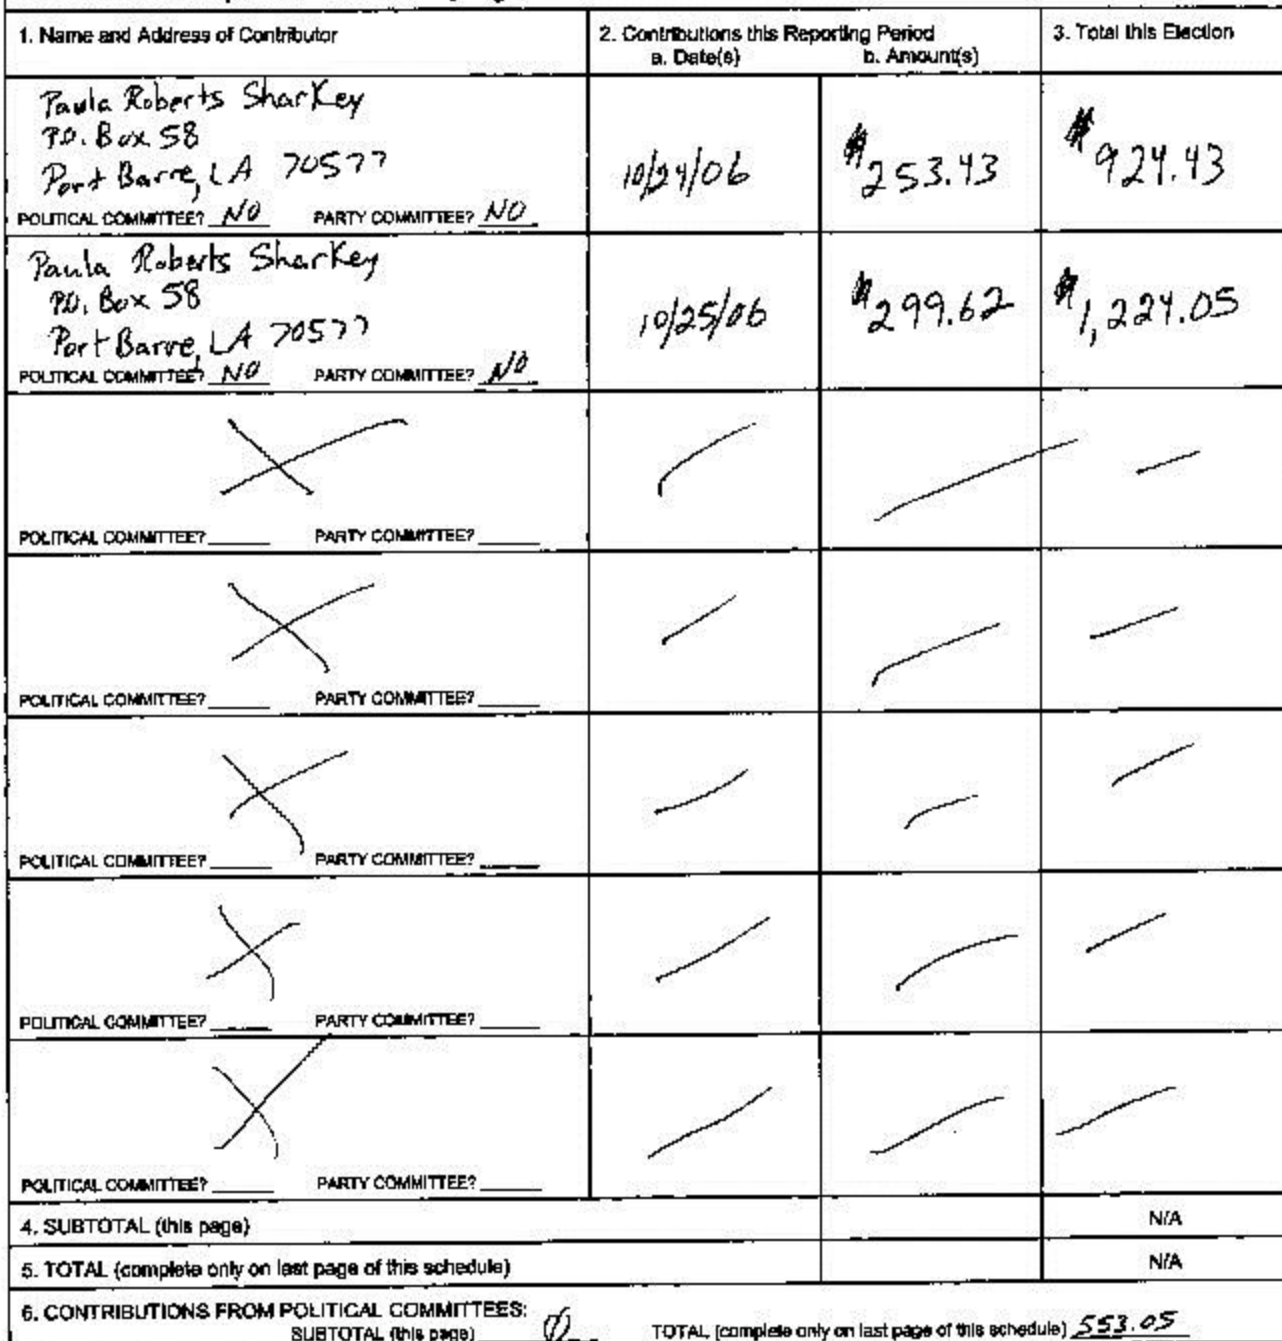 1. Name and Address of Contributor 2. Contributions this Reporting Period 3. Total this Election
a. Date(s) b. Amount(s)
Paula Roberts Sharkey
P.O. Box 58
Port Barre, LA 70577 10/24/06 $253.43 $924.43
POLITICAL COMMITTEE? NO PARTY COMMITTEE? NO
Paula Roberts Sharkey
P.O. Box 58
Port Barre, LA 70577 10/25/06 $299.62 $1,224.05
POLITICAL COMMITTEE? NO PARTY COMMITTEE? NO
POLITICAL COMMITTEE? PARTY COMMITTEE?
POLITICAL COMMITTEE? PARTY COMMITTEE?
POLITICAL COMMITTEE? PARTY COMMITTEE?
POLITICAL COMMITTEE? PARTY COMMITTEE?
POLITICAL COMMITTEE? PARTY COMMITTEE?
4. SUBTOTAL (this page) N/A
5. TOTAL (complete only on last page of this schedule) N/A
6. CONTRIBUTIONS FROM POLITICAL COMMITTEES:
SUBTOTAL (this page) Ø TOTAL (complete only on last page of this schedule) 553.05